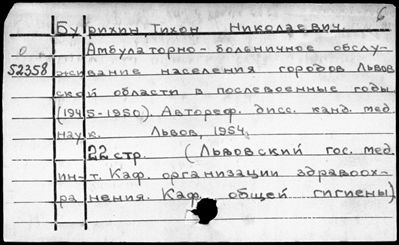 6
Бурихин, Тихон Николаевич.
Амбулаторно-больничное обслу-
52358 живание населения городов Львов
ской области в послевоенные годы
(1945-1950). Автореф. дисс. канд. мед.
наук. Львов, 1954.
22 стр. (Львовский гос. мед.
ин-т. Каф. организации здравоох-
ранения. Каф. общей гигиены)